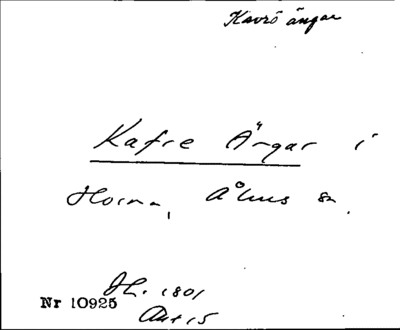 Kavrö ängar
Kafre Ängar i
Horna, Åhus sn.
Nr 10925
LH. 1801
Akt 15